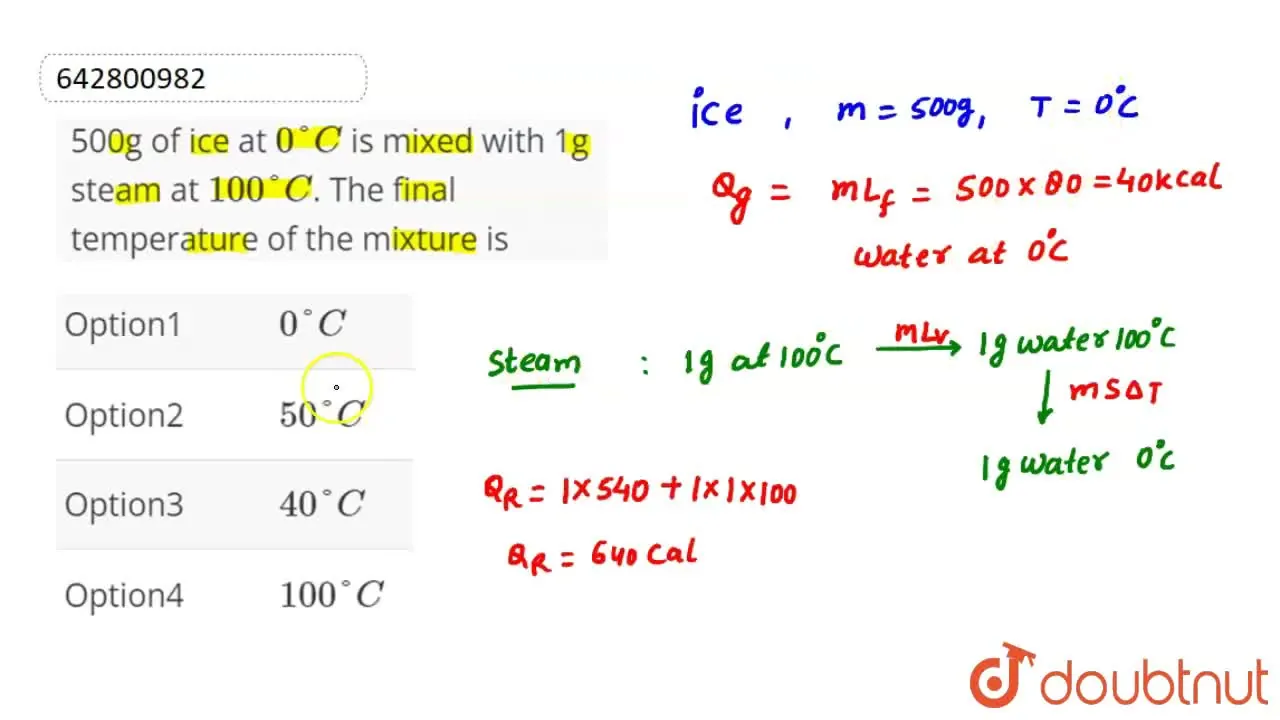 642800982
500g of ice at 0°C is mixed with 1g
steam at 100°C. The final
temperature of the mixture is
Option1 0°C
Option2 50°C
Option3 40°C
Option4 100°C
ice , m = 500g, T = 0°C
Qg = mLf = 500 × 80 = 40kcal
water at 0°C
Steam : 1g at 100°C mLv → 1g water 100°C
↓ mSΔT
1g water 0°C
QR = 1×540 + 1×1×100
QR = 640 Cal
doubtnut